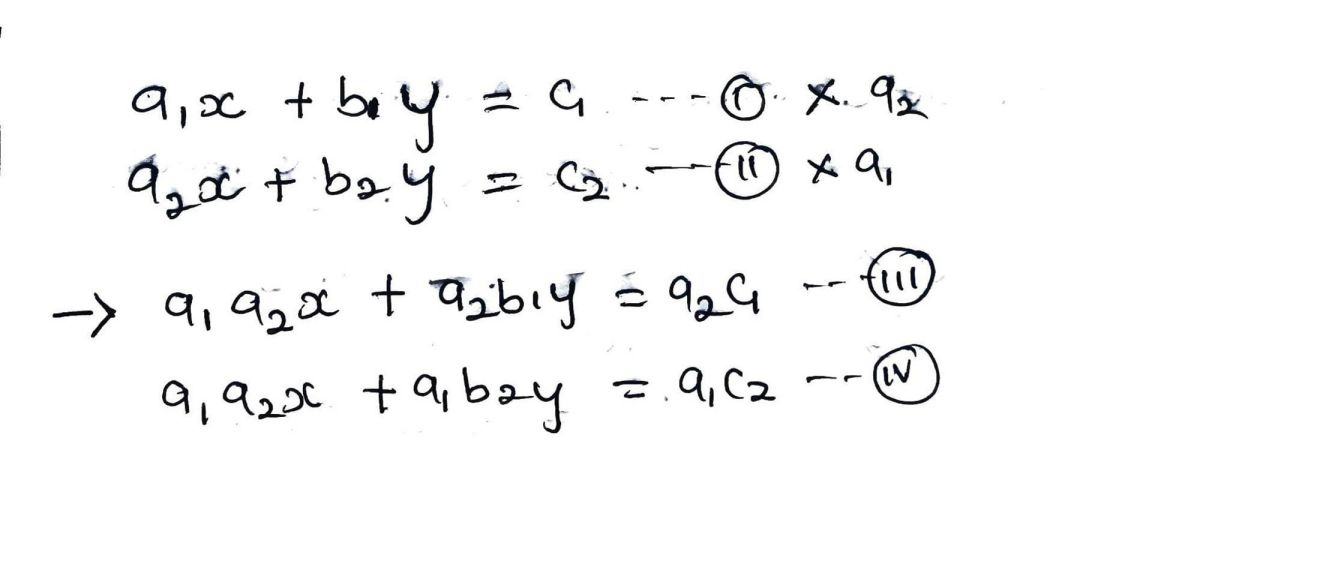 a₁x + b₁y = c₁ --- Ⓘ × a₂
a₂x + b₂y = c₂ .. — Ⓘ︎Ⓘ × a₁
→ a₁ a₂x + a₂b₁y = a₂c₁ -- (III)
a₁ a₂x + a₁b₂y = a₁c₂ -- (IV)